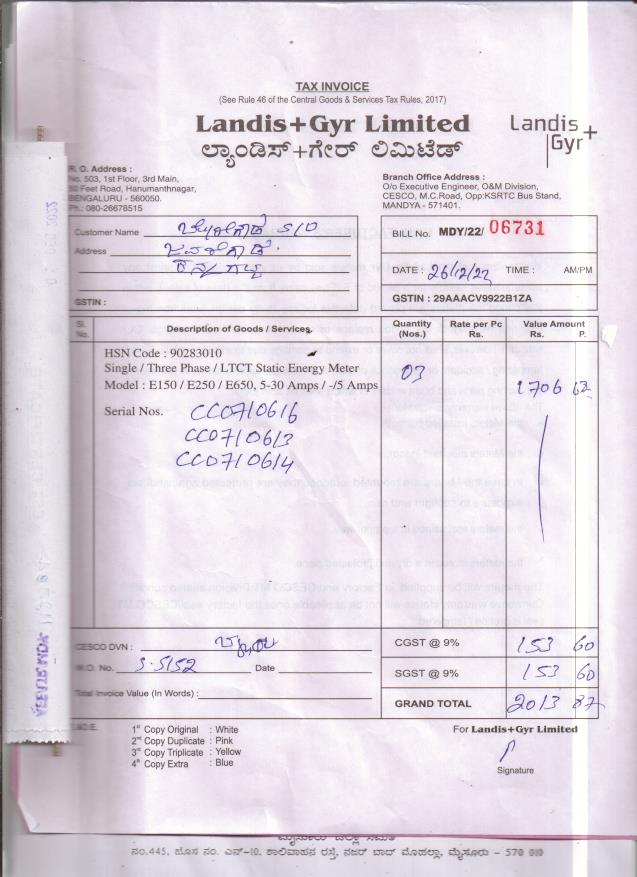 TAX INVOICE
(See Rule 46 of the Central Goods & Services Tax Rules, 2017)
Landis+Gyr Limited
ಲ್ಯಾಂಡಿಸ್+ಗೇರ್ ಲಿಮಿಟೆಡ್
Landis+
Gyr
R. O. Address :
No. 503, 1st Floor, 3rd Main,
80 Feet Road, Hanumanthnagar,
BENGALURU - 560050.
Ph.: 080-26678515
Branch Office Address :
O/o Executive Engineer, O&M Division,
CESCO, M.C.Road, Opp:KSRTC Bus Stand,
MANDYA - 571401.
Customer Name S/O
Address
GSTIN :
BILL No. MDY/22/ 06731
DATE : 26/12/22 TIME : AM/PM
GSTIN : 29AAACV9922B1ZA
Sl. No. Description of Goods / Services. Quantity (Nos.) Rate per Pc Rs. Value Amount Rs. P.
HSN Code : 90283010
Single / Three Phase / LTCT Static Energy Meter 03
Model : E150 / E250 / E650, 5-30 Amps / -/5 Amps 1706 62
Serial Nos. CC0710616
CC0710613
CC0710614
CESCO DVN :
W.O. No. S-5152 Date
Total Invoice Value (In Words) :
CGST @ 9% 153 60
SGST @ 9% 153 60
GRAND TOTAL 2013 87
E.&O.E.
1st Copy Original : White
2nd Copy Duplicate : Pink
3rd Copy Triplicate : Yellow
4th Copy Extra : Blue
For Landis+Gyr Limited
Signature
ನಂ.445, ಹೊಸ ನಂ. ಎನ್-10, ಶಾಲಿವಾಹನ ರಸ್ತೆ, ನಜರ್ ಬಾದ್ ಮೊಹಲ್ಲಾ, ಮೈಸೂರು - 570 010